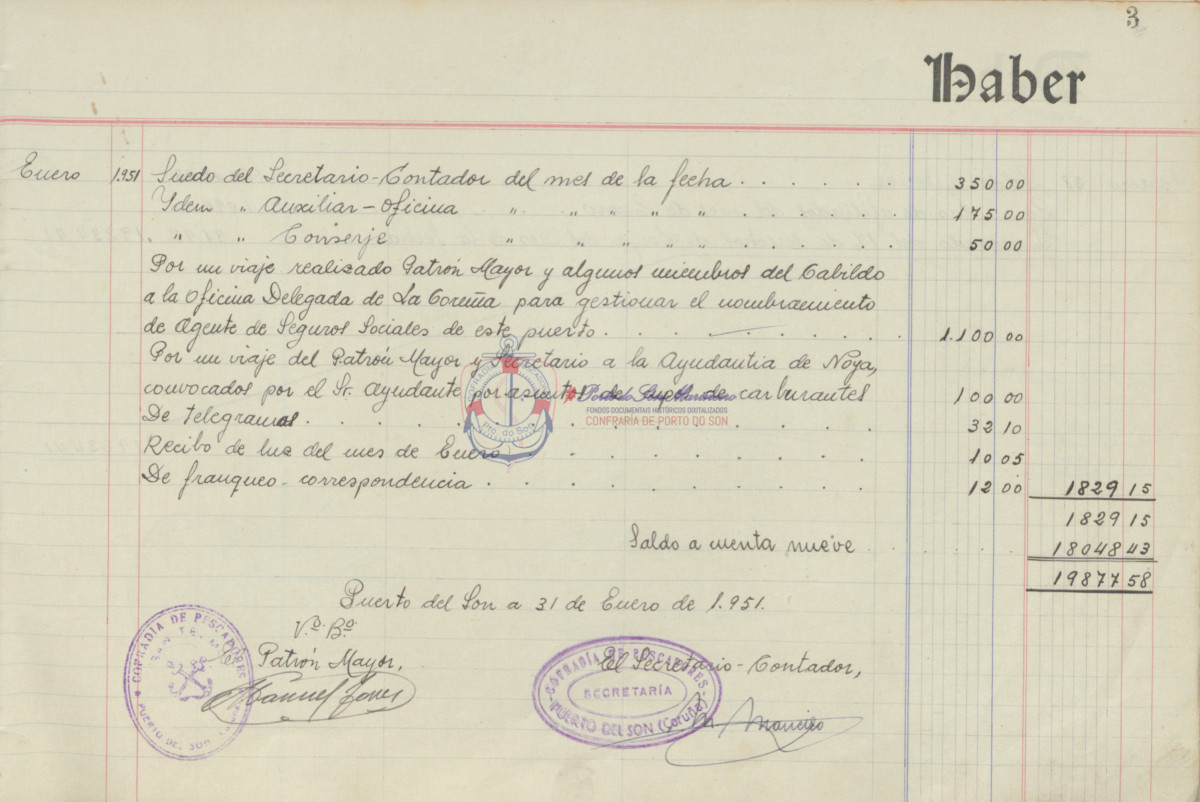 3
Haber
Enero 1.951 Sueldo del Secretario-Contador del mes de la fecha . . . . . . 350 00
Ydem " Auxiliar-Oficina " " " " " . . . 175 00
" " Conserje " " " " " . . . 50 00
Por un viaje realizado Patrón Mayor y algunos miembros del Cabildo
a la Oficina Delegada de La Coruña para gestionar el nombramiento
de Agente de Seguros Sociales de este puerto . . . . . . . . 1.100 00
Por un viaje del Patrón Mayor y Secretario a la Ayudantia de Noya,
convocados por el Sr. Ayudante por asuntos del cupo de carburantes 100 00
De telegramas . . . . . . . . . . 32 10
Recibo de luz del mes de Enero . . . . . . . 10 05
De franqueo-correspondencia . . . . . . . . 12 00 1829 15
1829 15
Saldo a cuenta nueve . . . . 18048 43
19877 58
Puerto del Son a 31 de Enero de 1.951.
Vº. Bº.
El Patrón Mayor,
Manuel
El Secretario-Contador,
COFRADÍA DE PESCADORES
PUERTO DEL SON
COFRADÍA DE PESCADORES
SECRETARÍA
PUERTO DEL SON (Coruña)
Pto. do Son
FONDOS DOCUMENTAIS HISTÓRICOS DIXITALIZADOS
CONFRARÍA DE PORTO DO SON